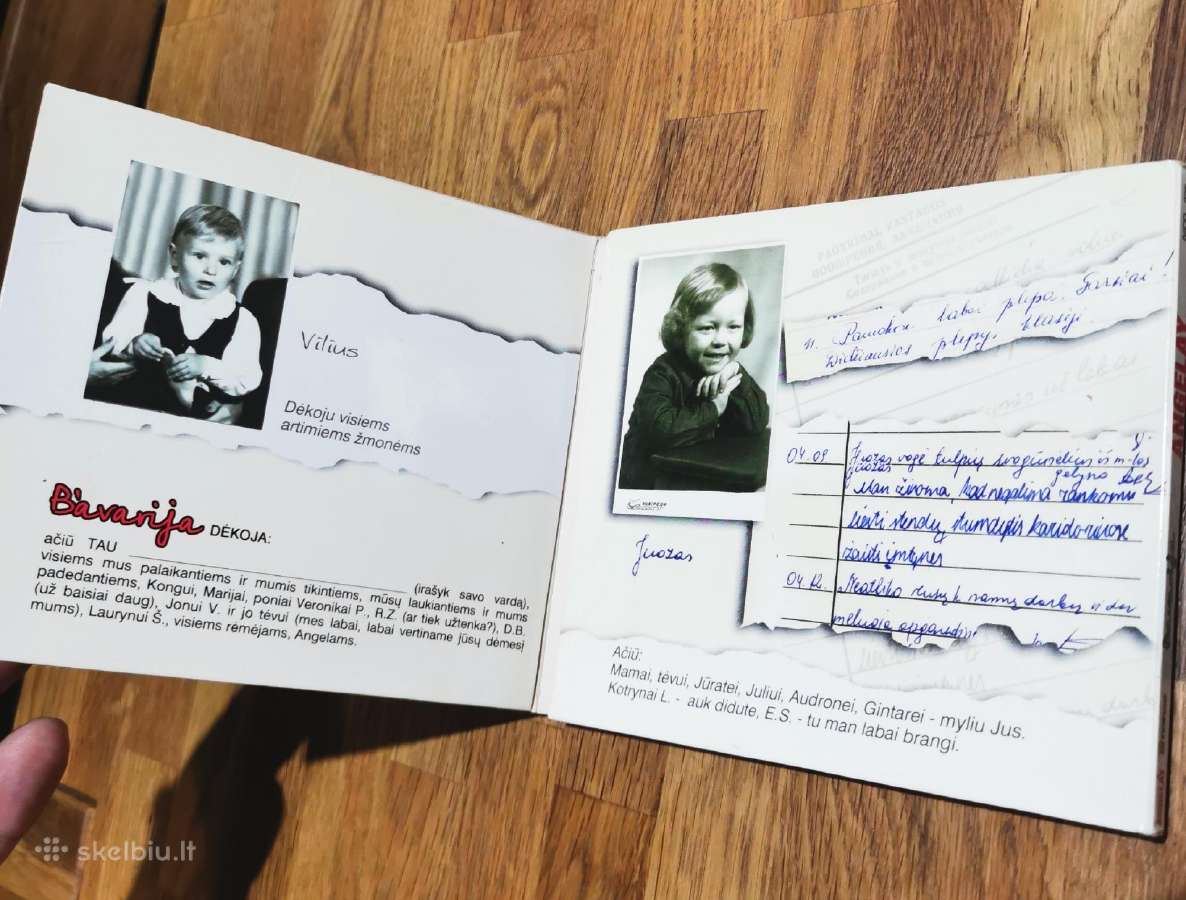 Vilius
Dėkoju visiems
artimiems žmonėms
Bavarija DĖKOJA:
ačiū TAU ______ (irašyk savo vardą),
visiems mus palaikantiems ir mumis tikintiems, mūsų laukiantiems ir mums
padedantiems, Kongui, Marijai, poniai Veronikai P., R.Z. (ar tiek užtenka?), D.B.
(už baisiai daug), Jonui V. ir jo tėvui (mes labai, labai vertiname jūsų dėmesį
mums), Laurynui Š., visiems rėmėjams, Angelams.
labai plepa.
plepys klasėj.
04.09 Juozas vogė tulpių svogūnėlius iš m-los
Man žinoma, kad negalima rankomis
liesti stendų, stumdytis koridoriuose
žaisti imtynes
04.12. namų darbų ir dar
meluoja
Juozas
Ačiū:
Mamai, tėvui, Jūratei, Juliui, Audronei, Gintarei - myliu Jus.
Kotrynai L. - auk didute, E.S. - tu man labai brangi.
skelbiu.lt